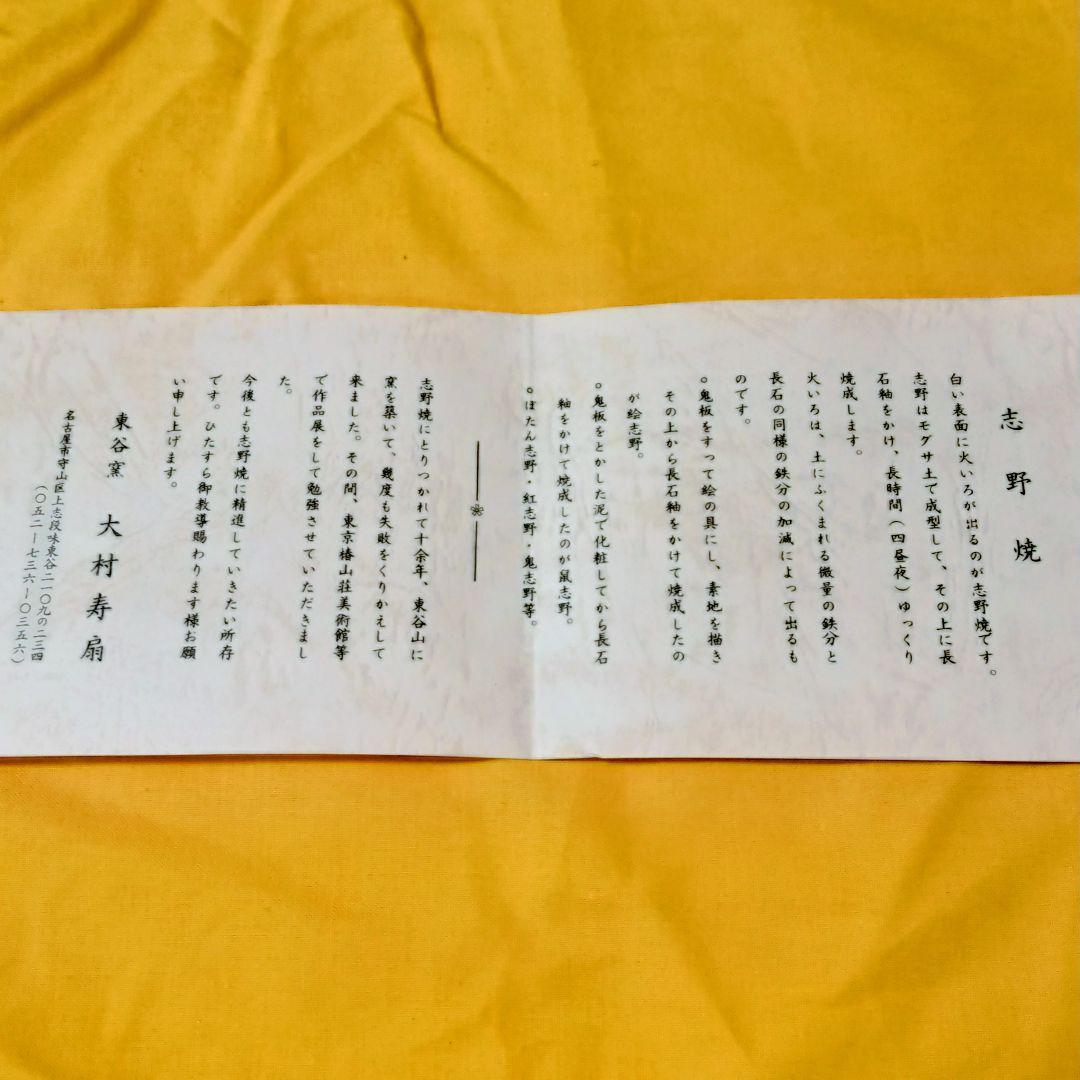 志野焼
白い表面に火いろが出るのが志野焼です。
志野はモグサ土で成型して、その上に長
石釉をかけ、長時間(四昼夜)ゆっくり
焼成します。
火いろは、土にふくまれる微量の鉄分と
長石の同様の鉄分の加減によって出るも
のです。
○鬼板をすって絵の具にし、素地を描き
その上から長石釉をかけて焼成したの
が絵志野。
○鬼板をとかした泥で化粧してから長石
釉をかけて焼成したのが鼠志野。
○ぼたん志野・紅志野・鬼志野等。
志野焼にとりつかれて十余年、東谷山に
窯を築いて、幾度も失敗をくりかえして
来ました。その間、東京椿山荘美術館等
で作品展をして勉強させていただきまし
た。
今後とも志野焼に精進していきたい所存
です。ひたすら御教導賜わります様お願
い申し上げます。
東谷窯 大村寿扇
名古屋市守山区上志段味東谷二一〇九の二三四
(〇五二―七三六―〇三五六)